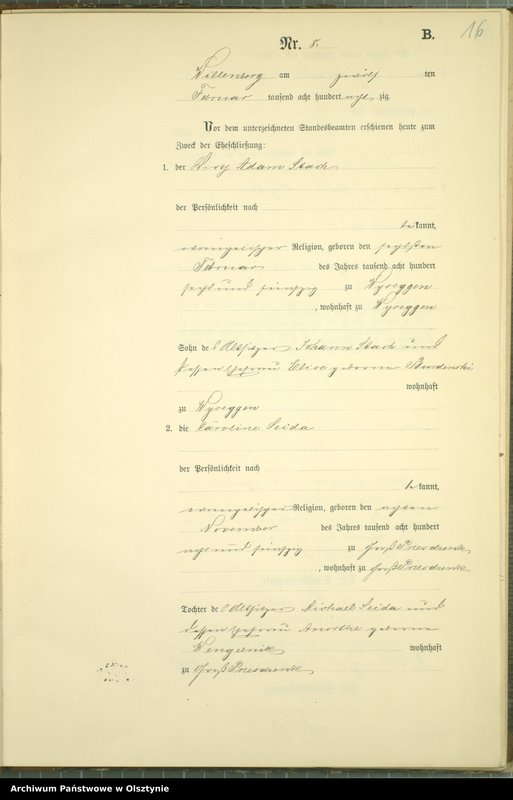 16
B.
Nr. 8.
Willenberg am zwölf ten
Februar tausend acht hundert acht zig
Vor dem unterzeichneten Standesbeamten erschienen heute zum
Zweck der Eheschließung:
1. der Wirth Adam Stach
der Persönlichkeit nach
be kannt,
evangelischer Religion, geboren den sechsten
Februar des Jahres tausend acht hundert
sechs und fünfzig zu Wyseggen
, wohnhaft zu Wyseggen
Sohn des Altsitzers Johann Stach und
dessen Ehefrau Elise geborene
wohnhaft
zu Wyseggen
2. die Caroline Seida
der Persönlichkeit nach
be kannt,
evangelischer Religion, geboren den achten
November des Jahres tausend acht hundert
acht und fünfzig zu Groß Przesdzienk
, wohnhaft zu Groß Przesdzienk
Tochter des Altsitzers Michael Seida und
dessen Ehefrau geborene
wohnhaft
zu Groß Przesdzienk
Archiwum Państwowe w Olsztynie